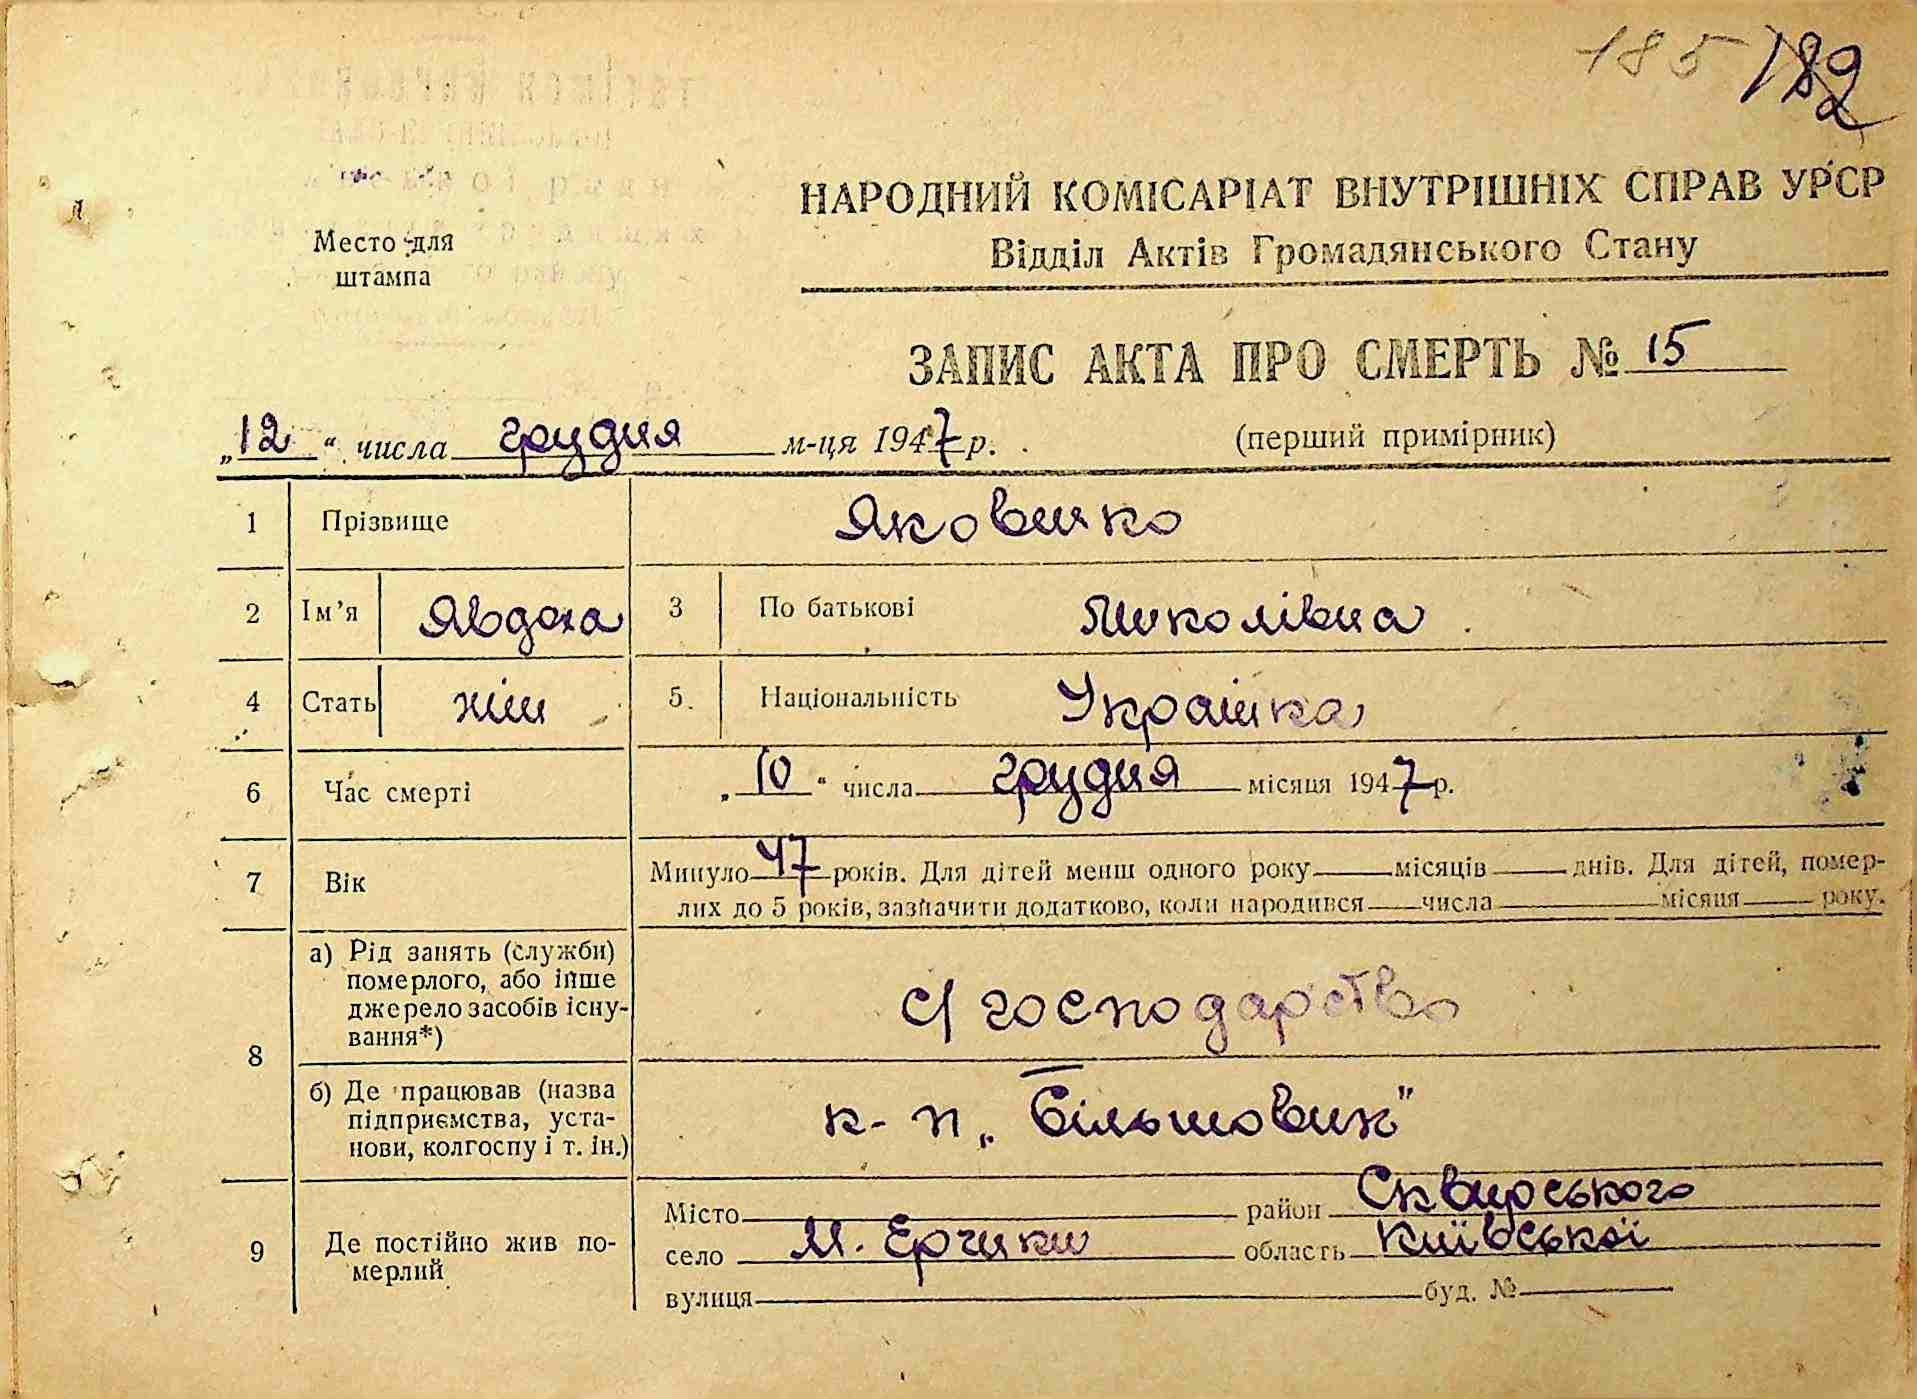 185 182
НАРОДНИЙ КОМІСАРІАТ ВНУТРІШНІХ СПРАВ УРСР
Відділ Актів Громадянського Стану
Место для
штампа
ЗАПИС АКТА ПРО СМЕРТЬ № 15
„12“ числа грудня м-ця 1947 р. (перший примірник)
1 Прізвище Яковенко
2 Ім'я Явдоха 3 По батькові Миколівна
4 Стать жін 5. Національність Українка
6 Час смерті „10“ числа грудня місяця 1947 р.
7 Вік Минуло 47 років. Для дітей менш одного року місяців днів. Для дітей, помер-
лих до 5 років, зазначити додатково, коли народився числа місяця року.
8 а) Рід занять (служби)
померлого, або інше
джерело засобів існу-
вання*)
с/господарство
б) Де працював (назва
підприємства, уста-
нови, колгоспу і т. ін.)
к-п „Більшовик"
9 Де постійно жив по-
мерлий
Місто район Сквирського
село М. Єрчики область Київської
вулиця буд. №